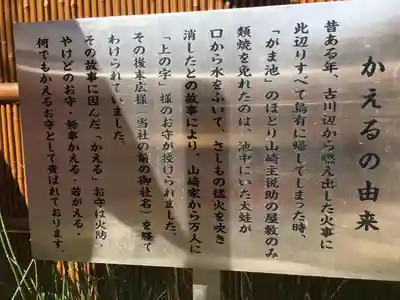 かえるの由来
昔ある年、古川辺から燃え出した火事に
此辺りすべて烏有に帰してしまった時、
「がま池」のほとり山崎主税助の屋敷のみ
類焼を免れたのは、池中にいた大蛙が
口から水をふいて、さしもの猛火を吹き
消したとの故事により、山崎家から万人に
「上の字」様のお守が授けられました。
その後末広様(当社の前の御社名)を経て
わけられていました。
その故事に因んだ「かえる」お守は火防・
やけどのお守・無事かえる・若がえる・
何でもかえるお守として貴ばれております。